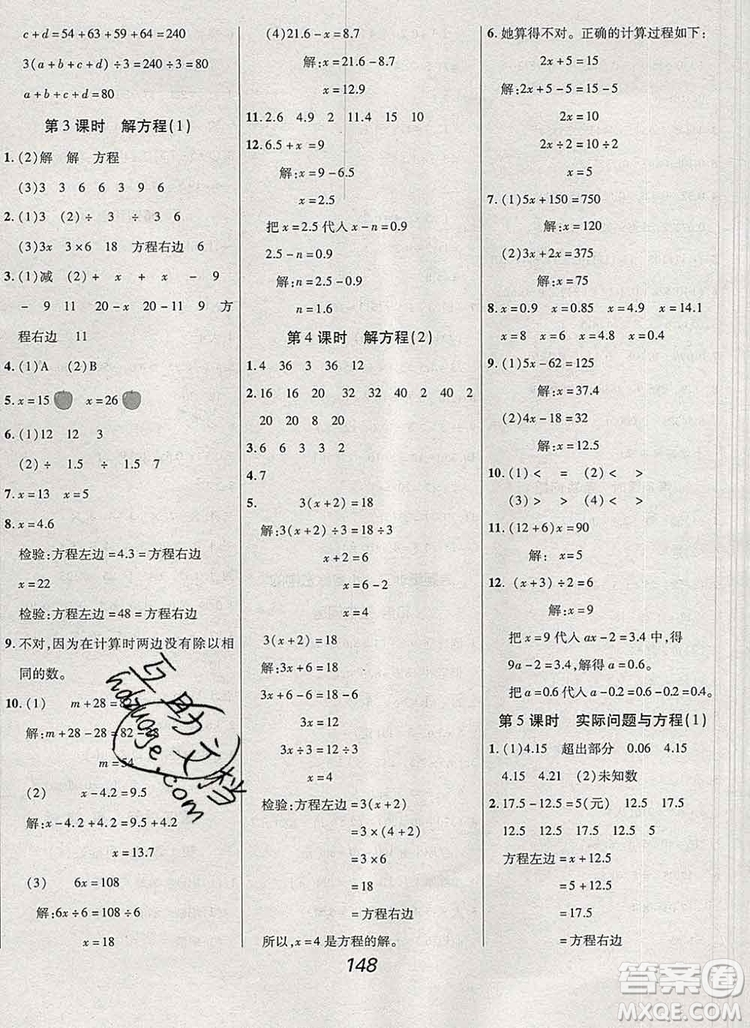 c+d=54+63+59+64=240
3(a+b+c+d)÷3=240÷3
a+b+c+d=80
第3课时 解方程(1)
1.(2)解 解 方程
(3)3 3 6 6 3 9 6 6
2.(1)3 (2)÷ 3 ÷ 3 6
(3)3x 3×6 18 方程右边 6
3.(1)减 (2)+ x + x - 9
- 9 11 20-x 20-11 9 方
程右边 11
4.(1)A (2)B
5.x=15 x=26
6.(1)12 12 3
(2)÷ 1.5 ÷ 1.5 7
7.x=13 x=5
8.x=4.6
检验:方程左边=4.3=方程右边
x=22
检验:方程左边=48=方程右边
9.不对,因为在计算时两边没有除以相
同的数。
10.(1) m+28=8
解:m+28-28=82
m=54
(2) x-4.2=9.5
解:x-4.2+4.2=9.5+4.2
x=13.7
(3) 6x=108
解:6x÷6=108÷6
x=18
(4)21.6-x=8.7
解:x=21.6-8.7
x=12.9
11.2.6 4.9 2 11.4 15 2
12.6.5+x=9
解:x=9-6.5
x=2.5
把x=2.5代人x-n=0.9
2.5-n=0.9
解:n=2.5-0.9
n=1.6
第4课时 解方程(2)
1.4 36 3 36 12
2.16 16 20 32 32 40 2 40 2
20 20 8 20
3.6 6 3 3 2
4.7
5. 3(x+2)=18
解:3(x+2)÷3=18÷3
x+2=6
x=6-2
x=4
3(x+2)=18
3x+6=18
3x+6-6=18-6
3x=12
3x÷3=12÷3
x=4
检验:方程左边=3(x+2)
=3×(4+2)
=3×6
=18
=方程右边
所以,x=4是方程的解。
6.她算得不对。正确的计算过程如下:
2x+5=15
解:2x+5-5=15-5
2x=10
2x÷2=10÷2
x=5
7.(1)5x+150=750
解:x=120
(2)3x+2x=375
解:x=75
8.x=0.9 x=0.85 x=4.9 x=14.1
x=8 x=6 x=4 x=0.4
9.(1)5x-62=125
解:x=37.4
(2)4x-18=32
解:x=12.5
10.(1)< = (2)< <
(3)> > (4)> =
11.(12+6)x=90
解:x=5
12.(x+3)÷2=6
解:x=9
把x=9代人ax-2=3.4中,得
9a-2=3.4,解得a=0.6。
把a=0.6代人,a-0.2=0.6-0.2=0.4。
第5课时 实际问题与方程(1)
1.(1)4.15 超出部分 0.06 4.15
4.15 4.21 (2)未知数
2.17.5-12.5=5(元) 12.5 17.5
12.5 12.5 5 5 12.5
方程左边=x+12.5
=5+12.5
=17.5
=方程右边
148
互助文档
hdzuoye.com
答案圈
MXQE.COM